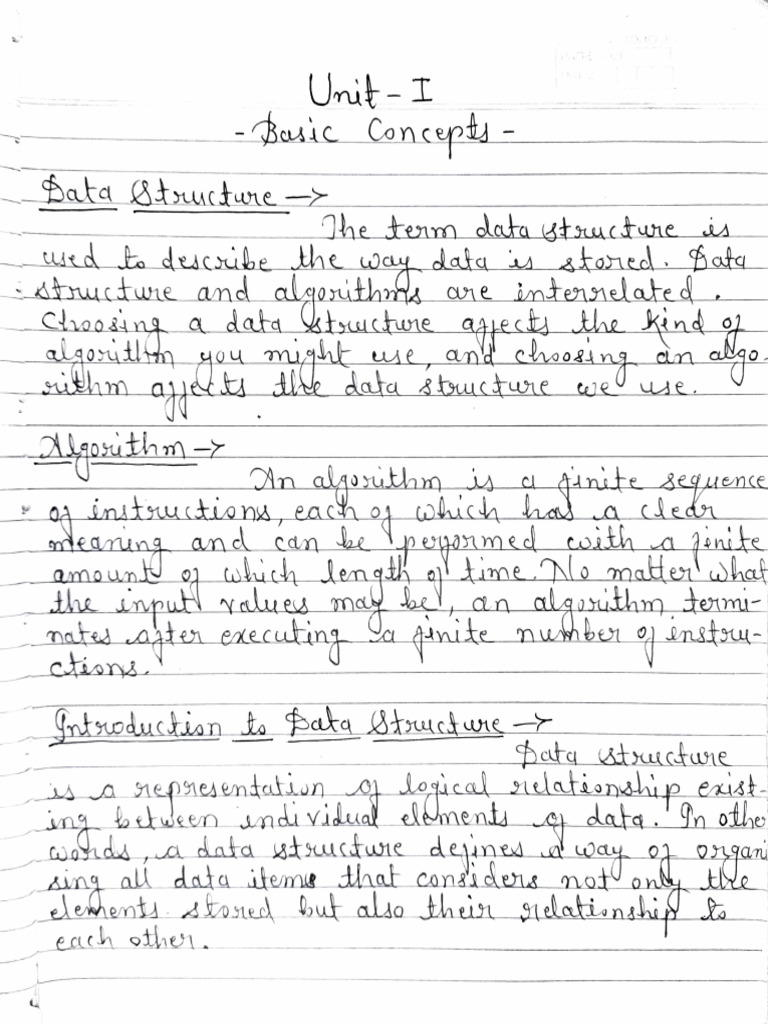 Unit - I
- Basic Concepts -
Data Structure →
The term data structure is
used to describe the way data is stored. Data
structure and algorithms are interrelated.
Choosing a data structure affects the kind of
algorithm you might use, and choosing an algo-
rithm affects the data structure we use.
Algorithm →
An algorithm is a finite sequence
of instructions, each of which has a clear
meaning and can be performed with a finite
amount of which length of time. No matter what
the input values may be, an algorithm termi-
nates after executing a finite number of instru-
ctions.
Introduction to Data Structure →
Data structure
is a representation of logical relationship exist-
ing between individual elements of data. In othe
words, a data structure defines a way of organi
sing all data items that considers not only the
elements stored but also their relationship to
each other.